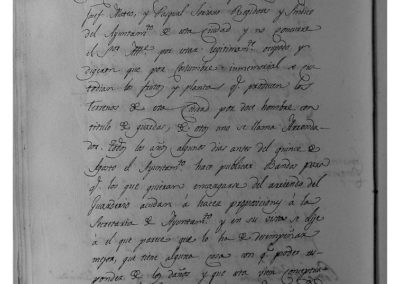 Josef Mateo, y Pasqual Serrano Regidores y Sindico
del Ayuntam.to de esta Ciudad y no concurre
el Sor. Alc.e por estar legitimam.te ocupado y
dijeron que por costumbre inmemorial se cus
todian los frutos y plantas q.e producen los
terrenos de esta Ciudad por doce hombres con
titulo de guardas, de estos uno se llama Arrenda
dor. todos los años, algunos dias antes del quince de
Agosto el Ayuntam.to hace publicar Bandos para
q.e los que quieran encargarse del arriendo del
acudan á hacer proposiciones á la
Secretaria de Ayuntam.to y en su vista se elije
á el que parece que lo ha de desempeñar
mejor, que tiene alguna cosa con q.e poder res
ponder de los daños y que esta bien